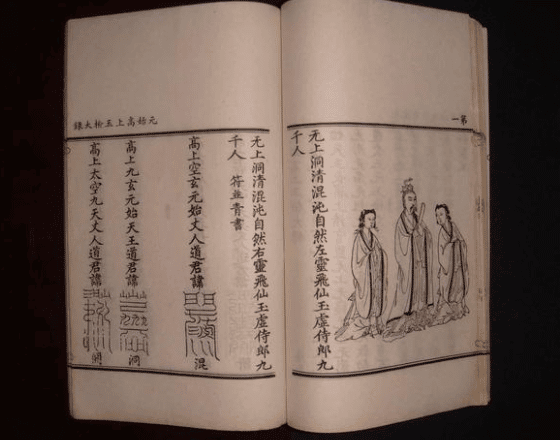 第一
无上洞清混沌自然左靈飛仙玉虛侍郎九
千人
元始高上玉檢大籙
无上洞清混沌自然右靈飛仙玉虛侍郎九
千人 符並青書
高上空玄元始丈人道君諱 混
高上九玄元始天王道君諱 洞
高上太空九天丈人道君諱